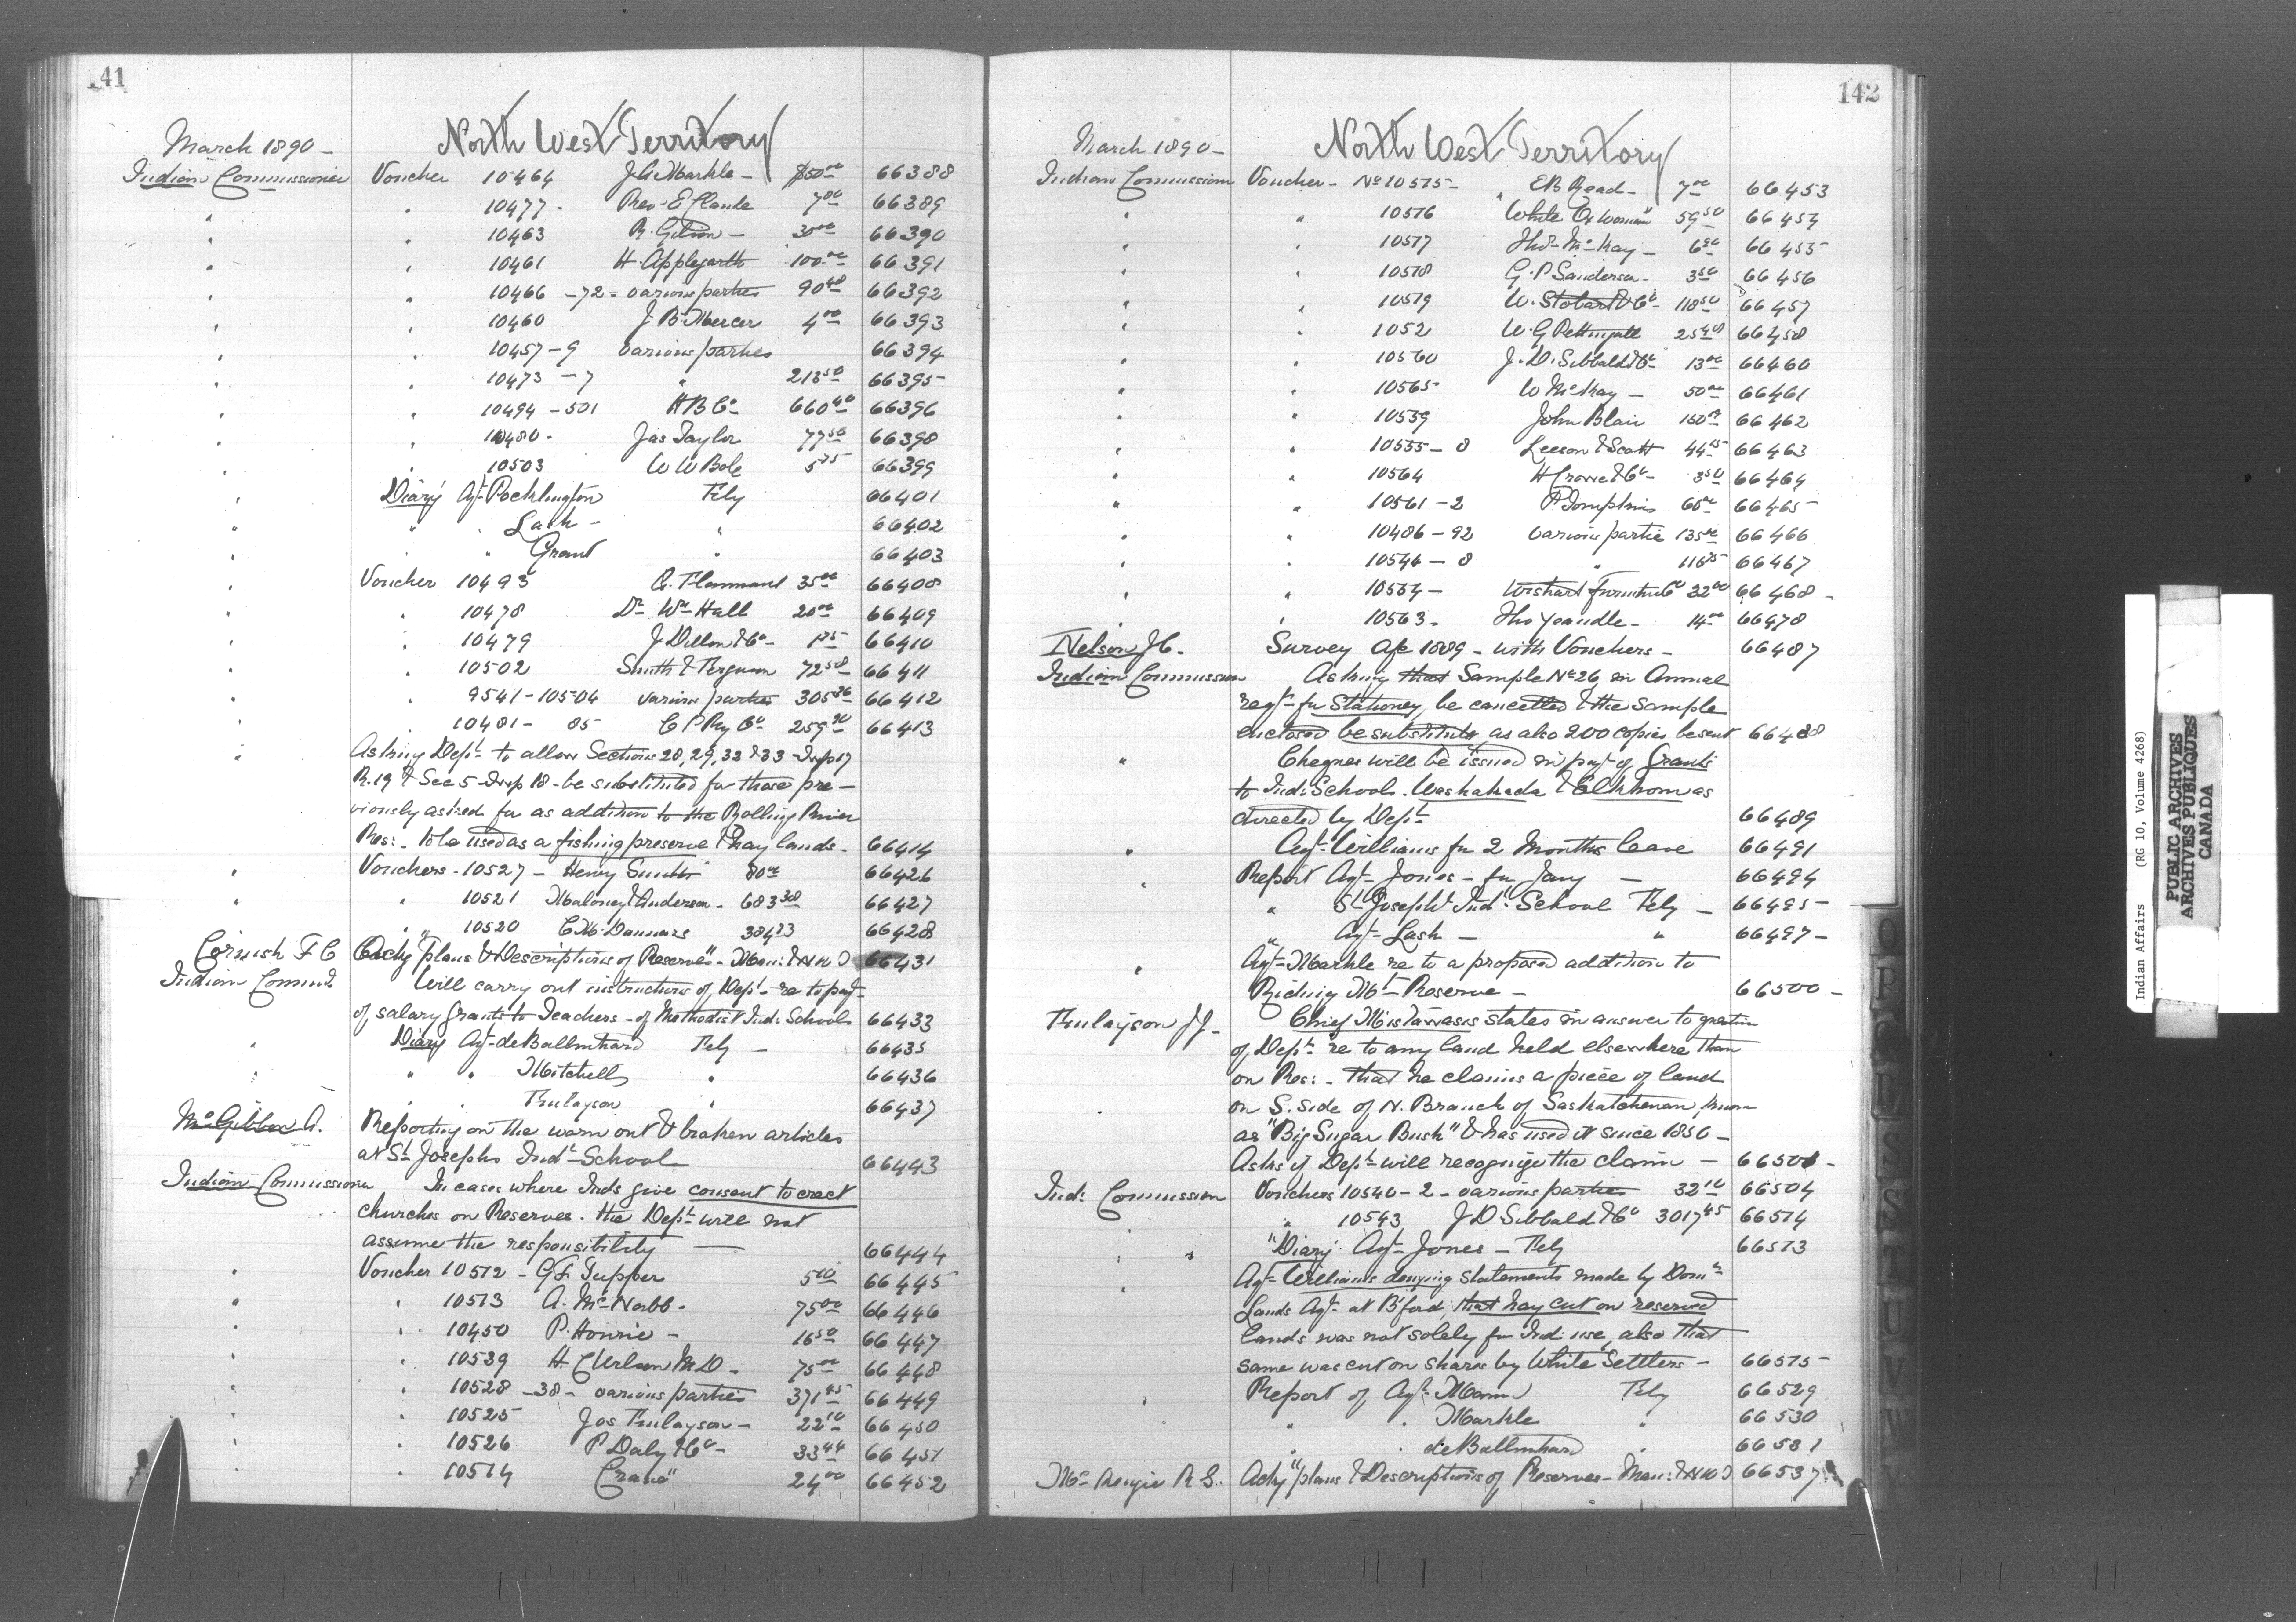 141
North West Territory
March 1890 -
Indian Commissioner Voucher 10464 J A Markle - $50 00 66388
" " 10477 - Rev. E Claude 7 00 66389
" " 10463 R. Gibson - 30 00 66390
" " 10461 H. Applegarth 100 00 66391
" " 10466 - 72 - various parties 90 48 66392
" " 10460 J. B. Mercer 4 00 66393
" " 10457 - 9 various parties 66394
" " 10473 - 7 " 213 50 66395
" " 10494 - 501 H B Co 660 40 66396
" " 10480 - Jas Taylor 77 50 66398
" " 10503 W W Bole 5 75 66399
" Diary Agt Pocklington Feby 66401
" " " Lash - " 66402
" " " Grant " 66403
" Voucher 10493 35 00 66408
" " 10478 Dr Wm Hall 20 00 66409
" " 10479 J. Dillon & Co - 1 75 66410
" " 10502 Smith & Ferguson 72 50 66411
" " 9541 - 10504 various parties 305 36 66412
" " 10481 - 85 C P Ry Co 259 90 66413
" Asking Dept to allow Sections 28, 29, 32 & 33 Twp 17
R. 19 & Sec 5 Twp 18 - be substituted for those pre-
viously asked for as addition to the Rolling River
Res: - to be used as a fishing preserve & hay lands - 66414
" Vouchers - 10527 - Henry Smith 80 00 66426
" " 10521 Maloney & Anderson - 683 38 66427
" " 10520 C. M. Daunais 384 23 66428
Cornish F C Ackg "plans & Descriptions of Reserves" - Man: & N W T 66431
Indian Commr Will carry out instructions of Dept - re to payt
of salary grants to Teachers - of Methodist Ind: Schools 66433
" Diary Agt - de Balinhard Feby - 66435
" " " Mitchell " 66436
" " Finlayson " 66437
McGibbon A. Reporting on the worn out & broken articles
at St Josephs Indl School 66443
Indian Commissioner In cases where Inds give consent to erect
churches on Reserves - the Dept will not
assume the responsibility — 66444
" Voucher 10512 - G F Tupper 5 00 66445
" " 10513 A. McNabb - 75 00 66446
" " 10450 P. Hourie - 16 50 66447
" " 10539 H. C Wilson M D - 75 00 66448
" " 10528 - 38 - various parties 371 45 66449
" " 10525 Jos Finlayson - 22 10 66450
" " 10526 P Daly & Co - 33 44 66451
" " 10514 Crane" 24 00 66452
142
North West Territory
March 1890 -
Indian Commission Voucher - No 10515 - E R Read - 7 00 66453
" " 10516 White Ox woman" 59 50 66454
" " 10517 Thos McKay - 6 90 66455
" " 10518 G. P Sanderson - 3 50 66456
" " 10519 W. Stobart & Co - 118 50 66457
" " 1052 W. G Pettingell 25 40 66458
" " 10560 J. D. Sibbald & Co 13 00 66460
" " 10565 W McKay - 50 00 66461
" " 10559 John Blair 66462
" " 10555 - 8 Leeson & Scott 44 25 66463
" " 10564 H Crowe & Co - 3 50 66464
" " 10561 - 2 P Tompkins 60 00 66465
" " 10486 - 92 various partie 135 00 66466
" " 10544 - 8 " 116 25 66467
" " 10554 - Wishart Furniture Co 32 00 66468 -
" " 10563 - Tho Yeandle - 14 00 66478
Nelson J C. Survey a/c 1889 - with Vouchers - 66487
Indian Commission Asking that Sample No 26 in Annual
reqt for Stationery, be cancelled & the sample
enclosed be substituted as also 200 copies be sent 66488
" Cheques will be issued in payt of Grants
to Indl Schools - Washakada & Elkhorn as
directed by Dept 66489
" Agt Williams for 2 Months leave 66491
" Report Agt Jones - for Jany — 66494
" St Joseph's Indl School Feby - 66495 -
" Agt - Lash - " 66497 -
" Agt - Markle re to a proposed addition to
Riding Mt - Reserve - 66500 -
Finlayson J J. Chief Mistawasis states in answer to question
of Dept re to any land held elsewhere than
on Res: - that he claims a piece of land
on S. side of N. Branch of Saskatchewan, known
as "Big Sugar Bush" & has used it since 1850 -
Asks if Dept will recognize the claim - 66501 -
Ind: Commission Vouchers 10540 - 2 - various parties 32 10 66504
" 10543 J D Sibbald & Co 3017 45 66514
" " "Diary Agt Jones - Feby 66513
" Agt - Williams denying statements made by Domn
Lands Agt - at B'ford, that hay cut on reserved
lands was not solely for Ind: use, also that
same was cut on shares by White Settlers - 66515 -
" Report of Agt Mann Feby 66529
" " Markle " 66530
" " de Balinhard " 66531
McKenzie R S. Ackg "plans & Descriptions of Reserves - Man: & N W T 66537
Q
R
E
S
S
T
U
V
W
Y
Indian Affairs (RG 10, Volume 4268)
PUBLIC ARCHIVES
ARCHIVES PUBLIQUES
CANADA